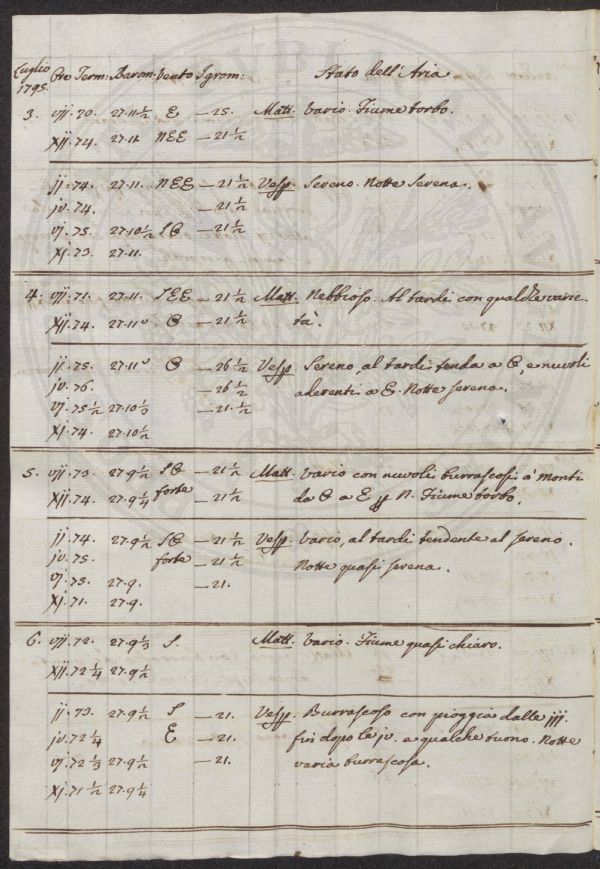 Luglio 1795. Ore Term: Barom: Vento Igrom: Stato dell'Aria
3. vij. 70. 27.11½ E — 25. Matt. Vario. Fiume torbo.
xij. 74. 27.11. NEE — 21½
ij. 74. 27.11. NEE — 21½ Vesp. Sereno. Notte serena.
jv. 74. — 21½
vj. 75. 27.10½ SO — 21½
xj. 73. 27.11.
4. vij. 71. 27.11. SEE — 21½ Matt. Nebbioso. Al tardi con qualche varie-
xij. 74. 27.11 O — 21½ tà.
ij. 75. 27.11 O — 26½ Vesp. Sereno, al tardi tenda a O, e nuvoli
jv. 76. — 26½ aderenti a E. Notte serena.
vj. 75½ 27.10⅓ — 21½
xj. 74. 27.10½
5. vij. 73. 27.9½ SO — 21½ Matt. Vario con nuvoli burrascosi a' monti
xij. 74. 27.9¼ forte — 21½ da O a E p N. Fiume torbo.
ij. 74. 27.9½ SO — 21½ Vesp. Vario, al tardi tendente al sereno.
jv. 75. forte — 21½ Notte quasi serena.
vj. 75. 27.9. — 21.
xj. 71. 27.9.
6. vij. 72. 27.9⅓ S. Matt. Vario. Fiume quasi chiaro.
xij. 72¼ 27.9½
ij. 73. 27.9½ S — 21. Vesp. Burrascoso con pioggia dalle iij.
jv. 72¼ E — 21. fin dopo le jv. a qualche tuono. Notte
vj. 72⅓ 27.9½ — 21. varia burrascosa.
xj. 71½ 27.9¼